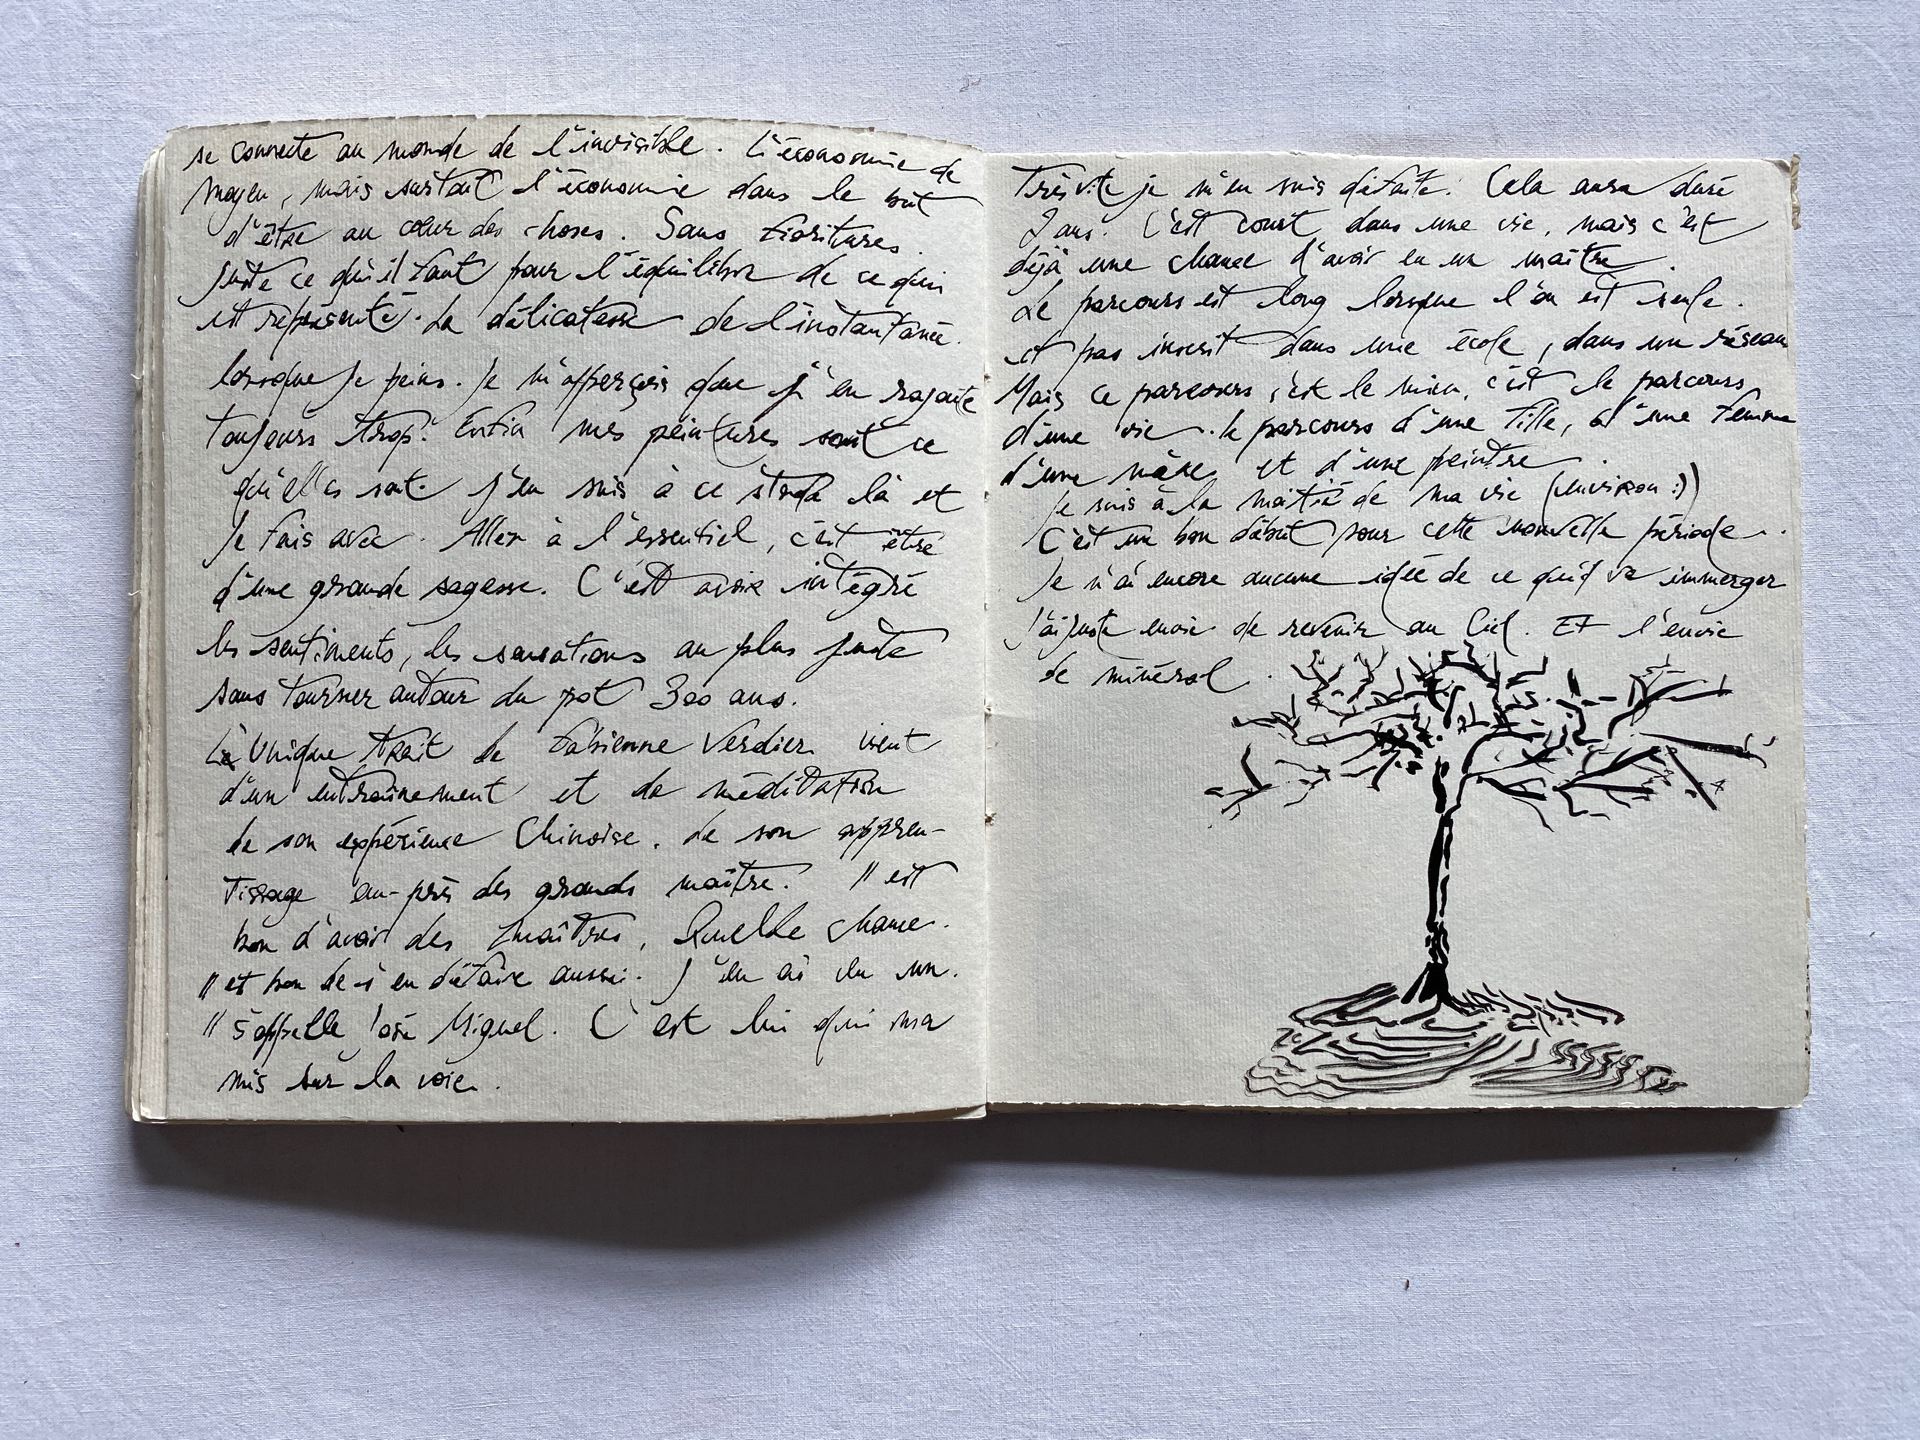 se connecte au monde de l'invisible. L'économie de
moyen, mais surtout l'économie dans le but
d'être au cœur des choses. Sans fioritures.
Juste ce qu'il faut pour l'équilibre de ce qui
est représenté. La délicatesse de l'instantanée.
lorsque je peins. Je m'apperçois que j'en rajoute
toujours trop. Enfin mes peintures sont ce
qu'elles sont. J'en suis à ce stade là et
Je fais avec. Aller à l'essentiel, c'est être
d'une grande sagesse. C'est avoir intégré
les sentiments, les sensations au plus juste
sans tourner autour du pot 300 ans.
L'Unique trait de Fabienne Verdier vient
d'un entraînement et de méditation
de son expérience Chinoise. de son appren-
tissage au-près des grands maître. Il est
bon d'avoir des maîtres, Quelle chance.
Il est bon de s'en défaire aussi. J'en ai eu un.
Il s'appelle José Miguel. C'est lui qui ma
mis sur la voie.
Très vite je m'en suis défaite. Cela aura duré
2 ans. C'est court dans une vie, mais c'est
déjà une chance d'avoir eu un maître.
Le parcours est long lorsque l'on est seule.
et pas inscrit dans une école, dans un réseau
Mais ce parcours c'est le mien, c'est le parcours
d'une vie. le parcours d'une fille, d'une femme
d'une mère et d'une peintre.
Je suis à la moitié de ma vie (environ :))
C'est un bon début pour cette nouvelle période.
Je n'ai encore aucune idée de ce qui va immerger
J'ai juste envie de revenir au Ciel. Et l'envie
de minéral.